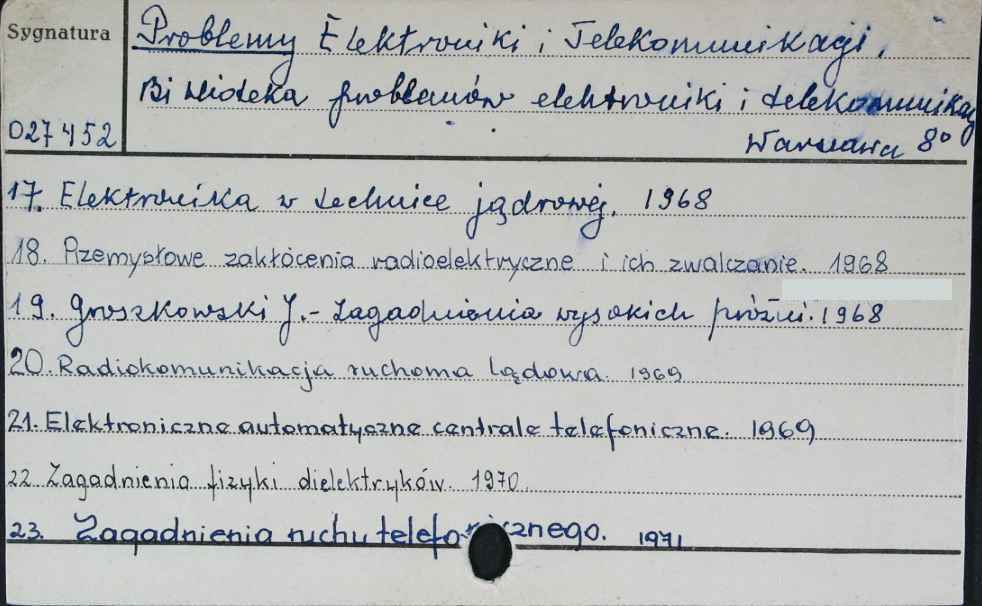 Sygnatura
Problemy Elektroniki i Telekomunikacji.
Biblioteka problemów elektroniki i telekomunikacj
027452
Warszawa 8°
17. Elektronika w technice jądrowej. 1968
18. Przemysłowe zakłócenia radioelektryczne i ich zwalczanie. 1968
19. Groszkowski J.- Zagadnienia wysokich próżni. 1968
20. Radiokomunikacja ruchoma lądowa. 1969
21. Elektroniczne automatyczne centrale telefoniczne. 1969
22 Zagadnienia fizyki dielektryków. 1970.
23. Zagadnienia ruchu telefonicznego. 1971